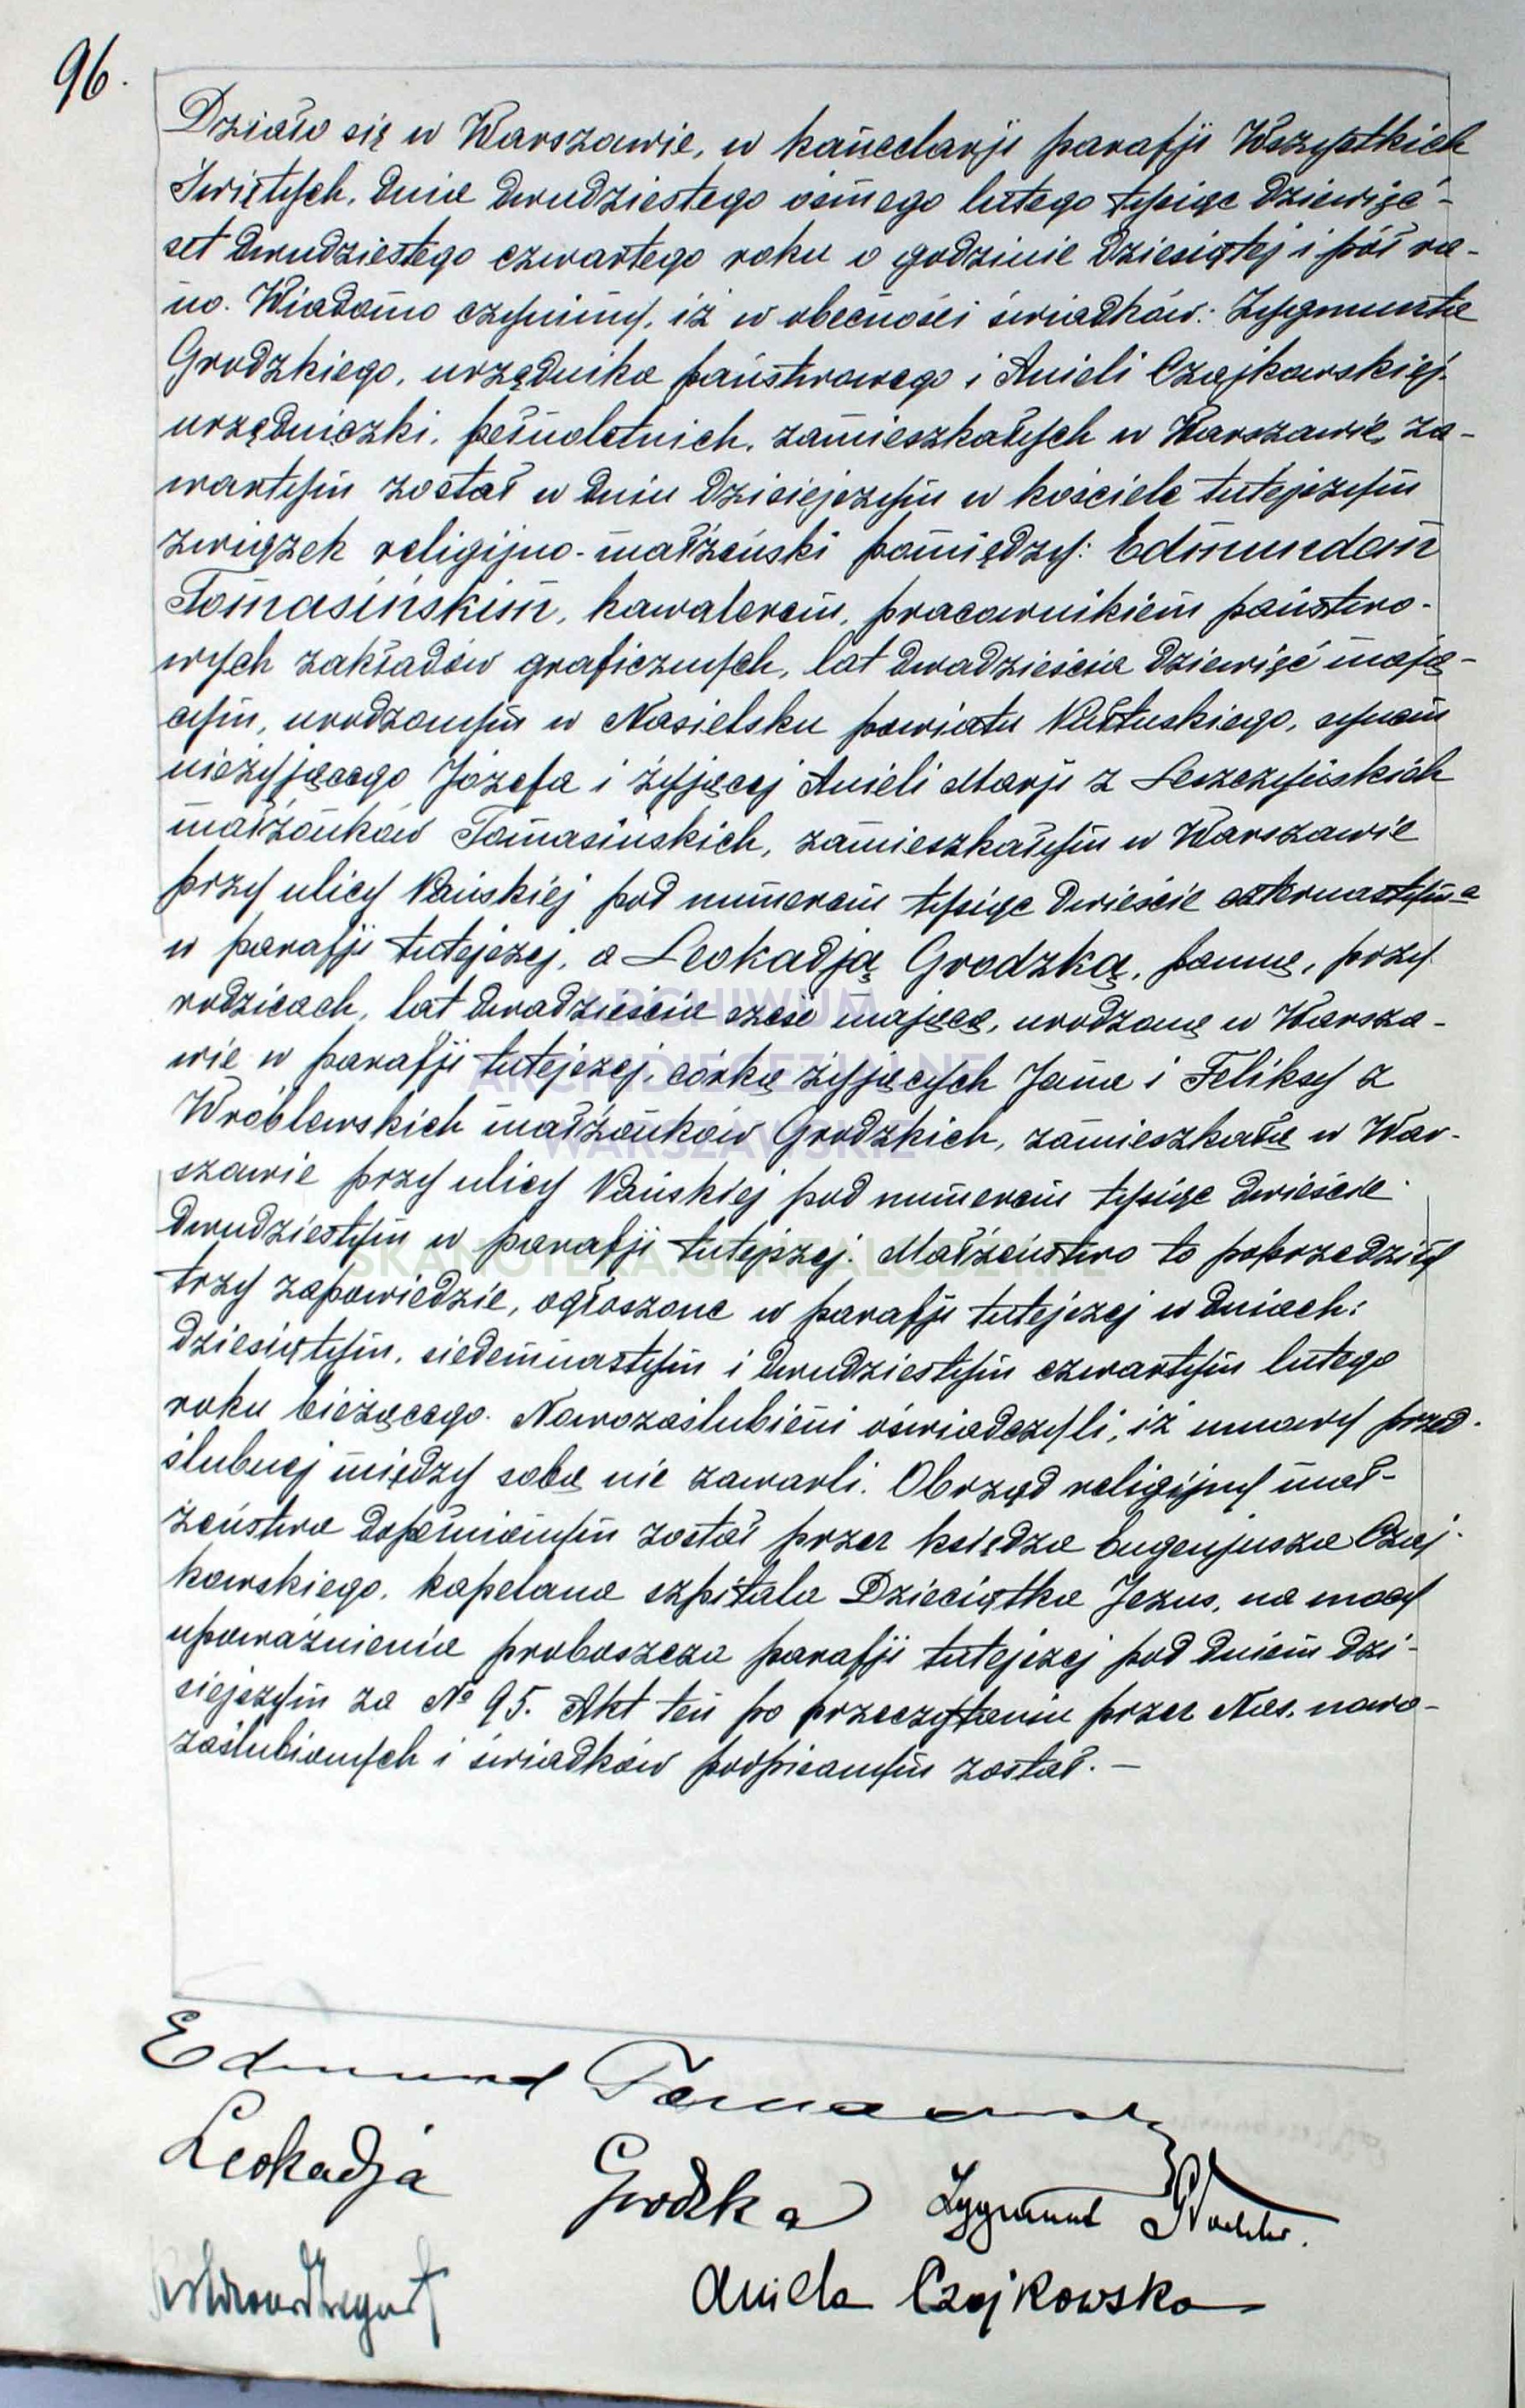 96.
Działo się w Warszawie, w kancelarji parafji Wszystkich
Świętych, dnia dwudziestego ósmego lutego tysiąc dziewięć-
set dwudziestego czwartego roku o godzinie dziesiątej i pół ra-
no. Wiadomo czynimy, iż w obecności świadków: Zygmunta
Grodzkiego, urzędnika państwowego i Anieli Czajkowskiej,
urzędniczki, pełnoletnich, zamieszkałych w Warszawie, za-
wartym został w dniu dzisiejszym w kościele tutejszym
związek religijno-małżeński pomiędzy: Edmundem
Tomasińskim, kawalerem, pracownikiem państwo-
wych zakładów graficznych, lat dwadzieścia dziewięć mają-
cym, urodzonym w Nasielsku powiatu Pułtuskiego, synem
nieżyjącego Józefa i żyjącej Anieli Marji z Leszczyńskich
małżonków Tomasińskich, zamieszkałym w Warszawie
przy ulicy Pańskiej pod numerem tysiąc dwieście czternastym a
w parafji tutejszej, a Leokadją Grodzką, panną, przy
rodzicach, lat dwadzieścia sześć mającą, urodzoną w Warsza-
wie w parafji tutejszej, córką żyjących Jana i Feliksy z
Wróblewskich małżonków Grodzkich, zamieszkałą w War-
szawie przy ulicy Pańskiej pod numerem tysiąc dwieście
dwudziestym w parafji tutejszej. Małżeństwo to poprzedziły
trzy zapowiedzie, ogłoszone w parafji tutejszej w dniach:
dziesiątym, siedemnastym i dwudziestym czwartym lutego
roku bieżącego. Nowozaślubieni oświadczyli, iż umowy przed-
ślubnej między sobą nie zawarli. Obrząd religijny mał-
żeństwa dopełnionym został przez księdza Eugenjusza Czaj-
kowskiego, kapelana szpitala Dzieciątka Jezus, na mocy
upoważnienia proboszcza parafji tutejszej pod dniem dzi-
siejszym za № 95. Akt ten po przeczytaniu przez Nas, nowo-
zaślubionych i świadków podpisanym został. –
ARCHIWUM
ARCHIDIECEZJALNE
WARSZAWSKIE
SKANOTEKA.GENEALODZY.PL
Edmund Tomasiński
Leokadja Grodzka Zygmunt Grodzki.
Aniela Czajkowska